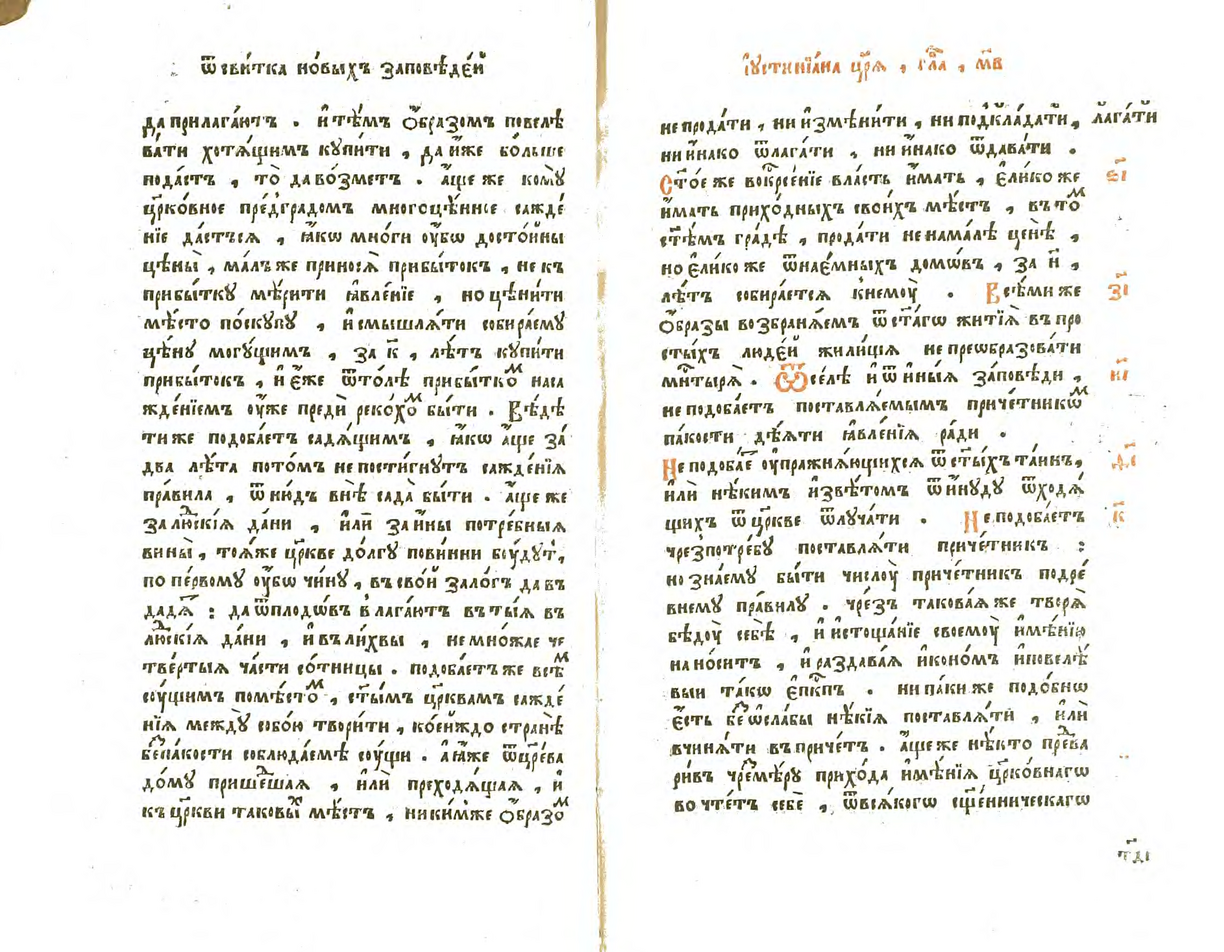 ѿ сви́тка но́выхъ за́повѣде́й
да прилага́ютъ . и҆ тѣ́мъ ѻ҆́бразомъ повелѣ
ва́ти хотѧ́щимъ кꙋпи́ти , да и҆́же бо́льше
пода́стъ , то̀ да во́зметъ . а҆́ще же комꙋ̀
цр҃ко́вное пре́дградомъ многоцѣ́нное сажде́
нїе да́стъсѧ , ꙗ҆́кѡ мно́ги оу҆́бѡ досто́йны
цѣны̀ , ма́лъ же приносѧ̀ прибы́токъ , не къ
прибы́ткꙋ мѣ́рити ꙗ҆вле́нїе , но цѣни́ти
мѣ́сто по́скꙋпꙋ , и҆ смышлѧ́ти собира́емꙋ
цѣ́нꙋ могꙋ́щимъ , за к҃ , лѣ́тъ кꙋпи́ти
прибы́токъ , и҆ є҆́же ѿто́лѣ прибы́ткоⷨ наса
жде́нїемъ оу҆́же предѝ реко́хоⷨ бы́ти . Вѣ́дѣ
ти же подоба́етъ садѧ́щимъ , ꙗ҆́кѡ а҆́ще за́
два лѣ́та пото́мъ не пости́гнꙋтъ сажде́нїѧ
пра́вила , ѿ ню́дъ внѣ̀ са́да бы́ти . а҆́ще же
за лю́дскїѧ да́ни , и҆лѝ за и҆́ны потре́бныѧ
вины̀ , тоѧ́же цр҃кве до́лгꙋ пови́нни бꙋ́дꙋтъ,
по пе́рвомꙋ оу҆́бѡ чи́нꙋ , въ сво́й зало́гъ да въ
дадѧ́тъ : да ѿ плодо́въ влага́ютъ въ ты́ѧ въ
лю́дскїѧ да́ни , и҆ въ ли́хвы , не мно́жае че
тве́ртыѧ ча́сти со́тницы . подоба́етъ же всѣⷨ
сꙋ́щимъ по мѣ́стоⷨ , ст҃ы́мъ цр҃квамъ сажде́
нїѧ междꙋ̀ собо́ю твори́ти , ко́ейждо странѣ̀
беⷥ па́кости соблюда́емѣ сꙋ́щи . а҆ ꙗ҆́же ѿ цр҃е́ва
до́мꙋ прише́дшаѧ , и҆лѝ преходѧ́щаѧ , и҆
къ цр҃кви таковы́хъ мѣ́стъ , ники́мже ѻ҆́бразоⷨ
і҆ꙋстинїа́на цр҃ѧ̀ , гл҃а , м҃в
не прода́ти , ни и҆змѣни́ти , ни подкла́дати , ла́гати
ни и҆на́ко ѿлага́ти , ни и҆на́ко ѿдава́ти .
Ст҃о́е же воскр҃се́нїе вла́сть и҆́мать , є҆ли́ко же
и҆́мать прихо́дныхъ свои́хъ мѣ́стъ , въ тоⷨ
ст҃ѣ́мъ гра́дѣ , прода́ти не на ма́лѣ ценѣ̀ ,
но є҆ли́ко же ѿ нае́мныхъ домо́въ , за н҃ ,
лѣ́тъ собира́етсѧ к немꙋ̀ . Всѣ́ми же
ѻ҆́бразы возбранѧ́емъ ѿ ст҃а́гѡ житїѧ̀ въ про
сты́хъ люде́й жили́щѧ не преѡбразова́ти
мн҃тырѧ̀ . Ѿсе́лѣ и҆ ѿ и҆ны́ѧ за́поведи ,
не подоба́етъ поставлѧ́емымъ приче́тникѡⷨ
па́кости дѣ́ѧти ꙗ҆вле́нїѧ ра́ди .
Не подоба́етъ оу҆пражнѧ́ющихсѧ ѿ ст҃ы́хъ та́инъ,
и҆лѝ нѣ́кимъ и҆звѣ́томъ ѿи́нꙋдꙋ ѿходѧ́
щихъ ѿ цр҃кве ѿлꙋча́ти . Не подоба́етъ
чреⷥ потре́бꙋ поставлѧ́ти приче́тникъ :
но зна́емꙋ бы́ти числꙋ̀ приче́тникъ по дре́
внемꙋ пра́вилꙋ . чре́зъ такова́ѧ же творѧ̀
бѣдꙋ̀ себѣ̀ , и҆ и҆стоща́нїе своемꙋ̀ и҆мѣ́нїю
нано́ситъ , и҆ раздава́ѧ и҆коно́мъ и҆ повелѣ
выи та́кѡ є҆пⷭ҇кпъ . ни па́ки же подо́бнѡ
є҆́сть беⷥ ѡсла́бы нѣ́кїѧ поставлѧ́ти , и҆лѝ
вчинѧ́ти въ приче́тъ . а҆́ще же нѣ́кто прева
ри́въ чреⷥ мѣ́рꙋ прихо́да и҆мѣ́нїѧ цр҃ко́внагѡ
во чте́тъ себѐ , ѿ всѧ́когѡ сщ҃е́нническагѡ
ѕ҃і
з҃і
и҃і
ѳ҃і
к҃
тд҃і